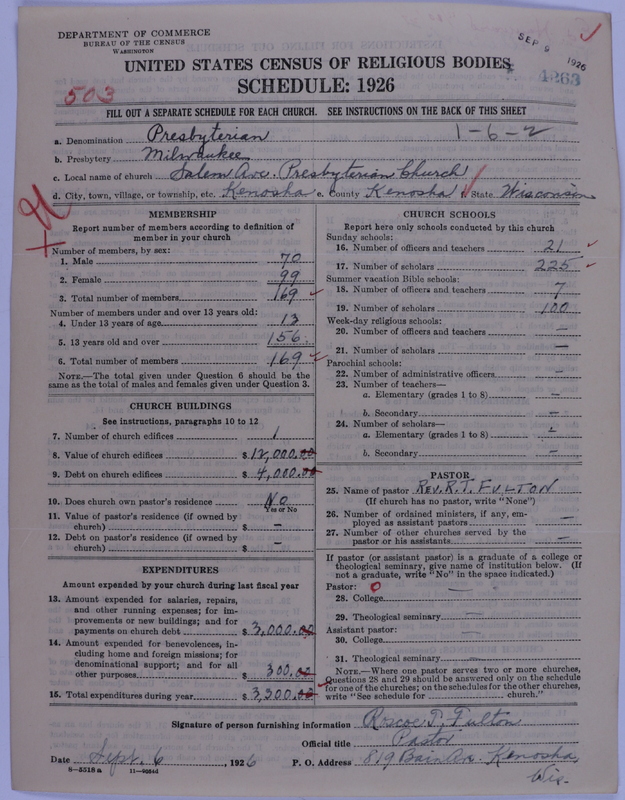 DEPARTMENT OF COMMERCE
BUREAU OF THE CENSUS
WASHINGTON
SEP 9 1926
UNITED STATES CENSUS OF RELIGIOUS BODIES
SCHEDULE: 1926
503
FILL OUT A SEPARATE SCHEDULE FOR EACH CHURCH. SEE INSTRUCTIONS ON THE BACK OF THIS SHEET
1-6-2
a. Denomination Presbyterian
b. Presbytery Milwaukee
c. Local name of church Salem Ave. Presbyterian Church
d. City, town, village, or township, etc. Kenosha e. County Kenosha f. State Wisconsin
MEMBERSHIP
Report number of members according to definition of
member in your church
Number of members, by sex:
1. Male 70
2. Female 99
3. Total number of members 169
Number of members under and over 13 years old:
4. Under 13 years of age 13
5. 13 years old and over 156
6. Total number of members 169
NOTE.—The total given under Question 6 should be the
same as the total of males and females given under Question 3.
CHURCH BUILDINGS
See instructions, paragraphs 10 to 12
7. Number of church edifices 1
8. Value of church edifices $ 12,000.00
9. Debt on church edifices $ 4,000.00
10. Does church own pastor's residence No
Yes or No
11. Value of pastor's residence (if owned by
church) $ —
12. Debt on pastor's residence (if owned by
church) $ —
EXPENDITURES
Amount expended by your church during last fiscal year
13. Amount expended for salaries, repairs,
and other running expenses; for im-
provements or new buildings; and for
payments on church debt $ 3,000.00
14. Amount expended for benevolences, in-
cluding home and foreign missions; for
denominational support; and for all
other purposes $ 300.00
15. Total expenditures during year $ 3,300.00
CHURCH SCHOOLS
Report here only schools conducted by this church
Sunday schools:
16. Number of officers and teachers 21
17. Number of scholars 225
Summer vacation Bible schools:
18. Number of officers and teachers 7
19. Number of scholars 100
Week-day religious schools:
20. Number of officers and teachers —
21. Number of scholars —
Parochial schools:
22. Number of administrative officers —
23. Number of teachers—
a. Elementary (grades 1 to 8) —
b. Secondary —
24. Number of scholars—
a. Elementary (grades 1 to 8) —
b. Secondary —
PASTOR
25. Name of pastor REV. R.T. FULTON
(If church has no pastor, write "None")
26. Number of ordained ministers, if any, em-
ployed as assistant pastors —
27. Number of other churches served by the
pastor or his assistants —
If pastor (or assistant pastor) is a graduate of a college or
theological seminary, give name of institution below. (If
not a graduate, write "No" in the space indicated.)
Pastor: 0
28. College —
29. Theological seminary —
Assistant pastor:
30. College —
31. Theological seminary —
NOTE.—Where one pastor serves two or more churches,
Questions 28 and 29 should be answered only on the schedule
for one of the churches; on the schedules for the other churches,
write "See schedule for church."
Signature of person furnishing information Roscoe T. Fulton
Official title Pastor
Date Sept. 6, 1926 P. O. Address 819 Bain Av. Kenosha,
Wis.
8-5518 a